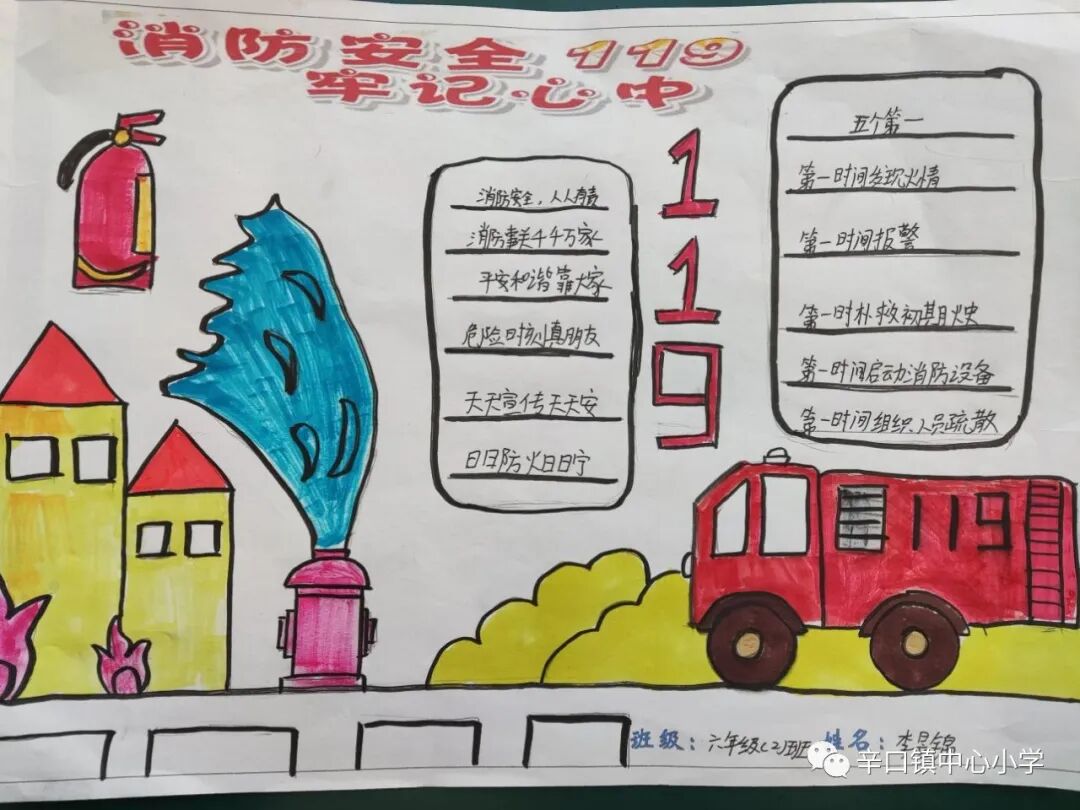 消防安全 119
牢记心中
消防安全,人人有责
消防事关千千万家
平安和谐靠大家
危险时刻真朋友
天天宣传天天安
日日防火日日宁
119
五个第一
第一时间发现火情
第一时间报警
第一时扑救初期火灾
第一时间启动消防设备
第一时间组织人员疏散
119
班级：六年级(2)班 姓名：李
辛口镇中心小学